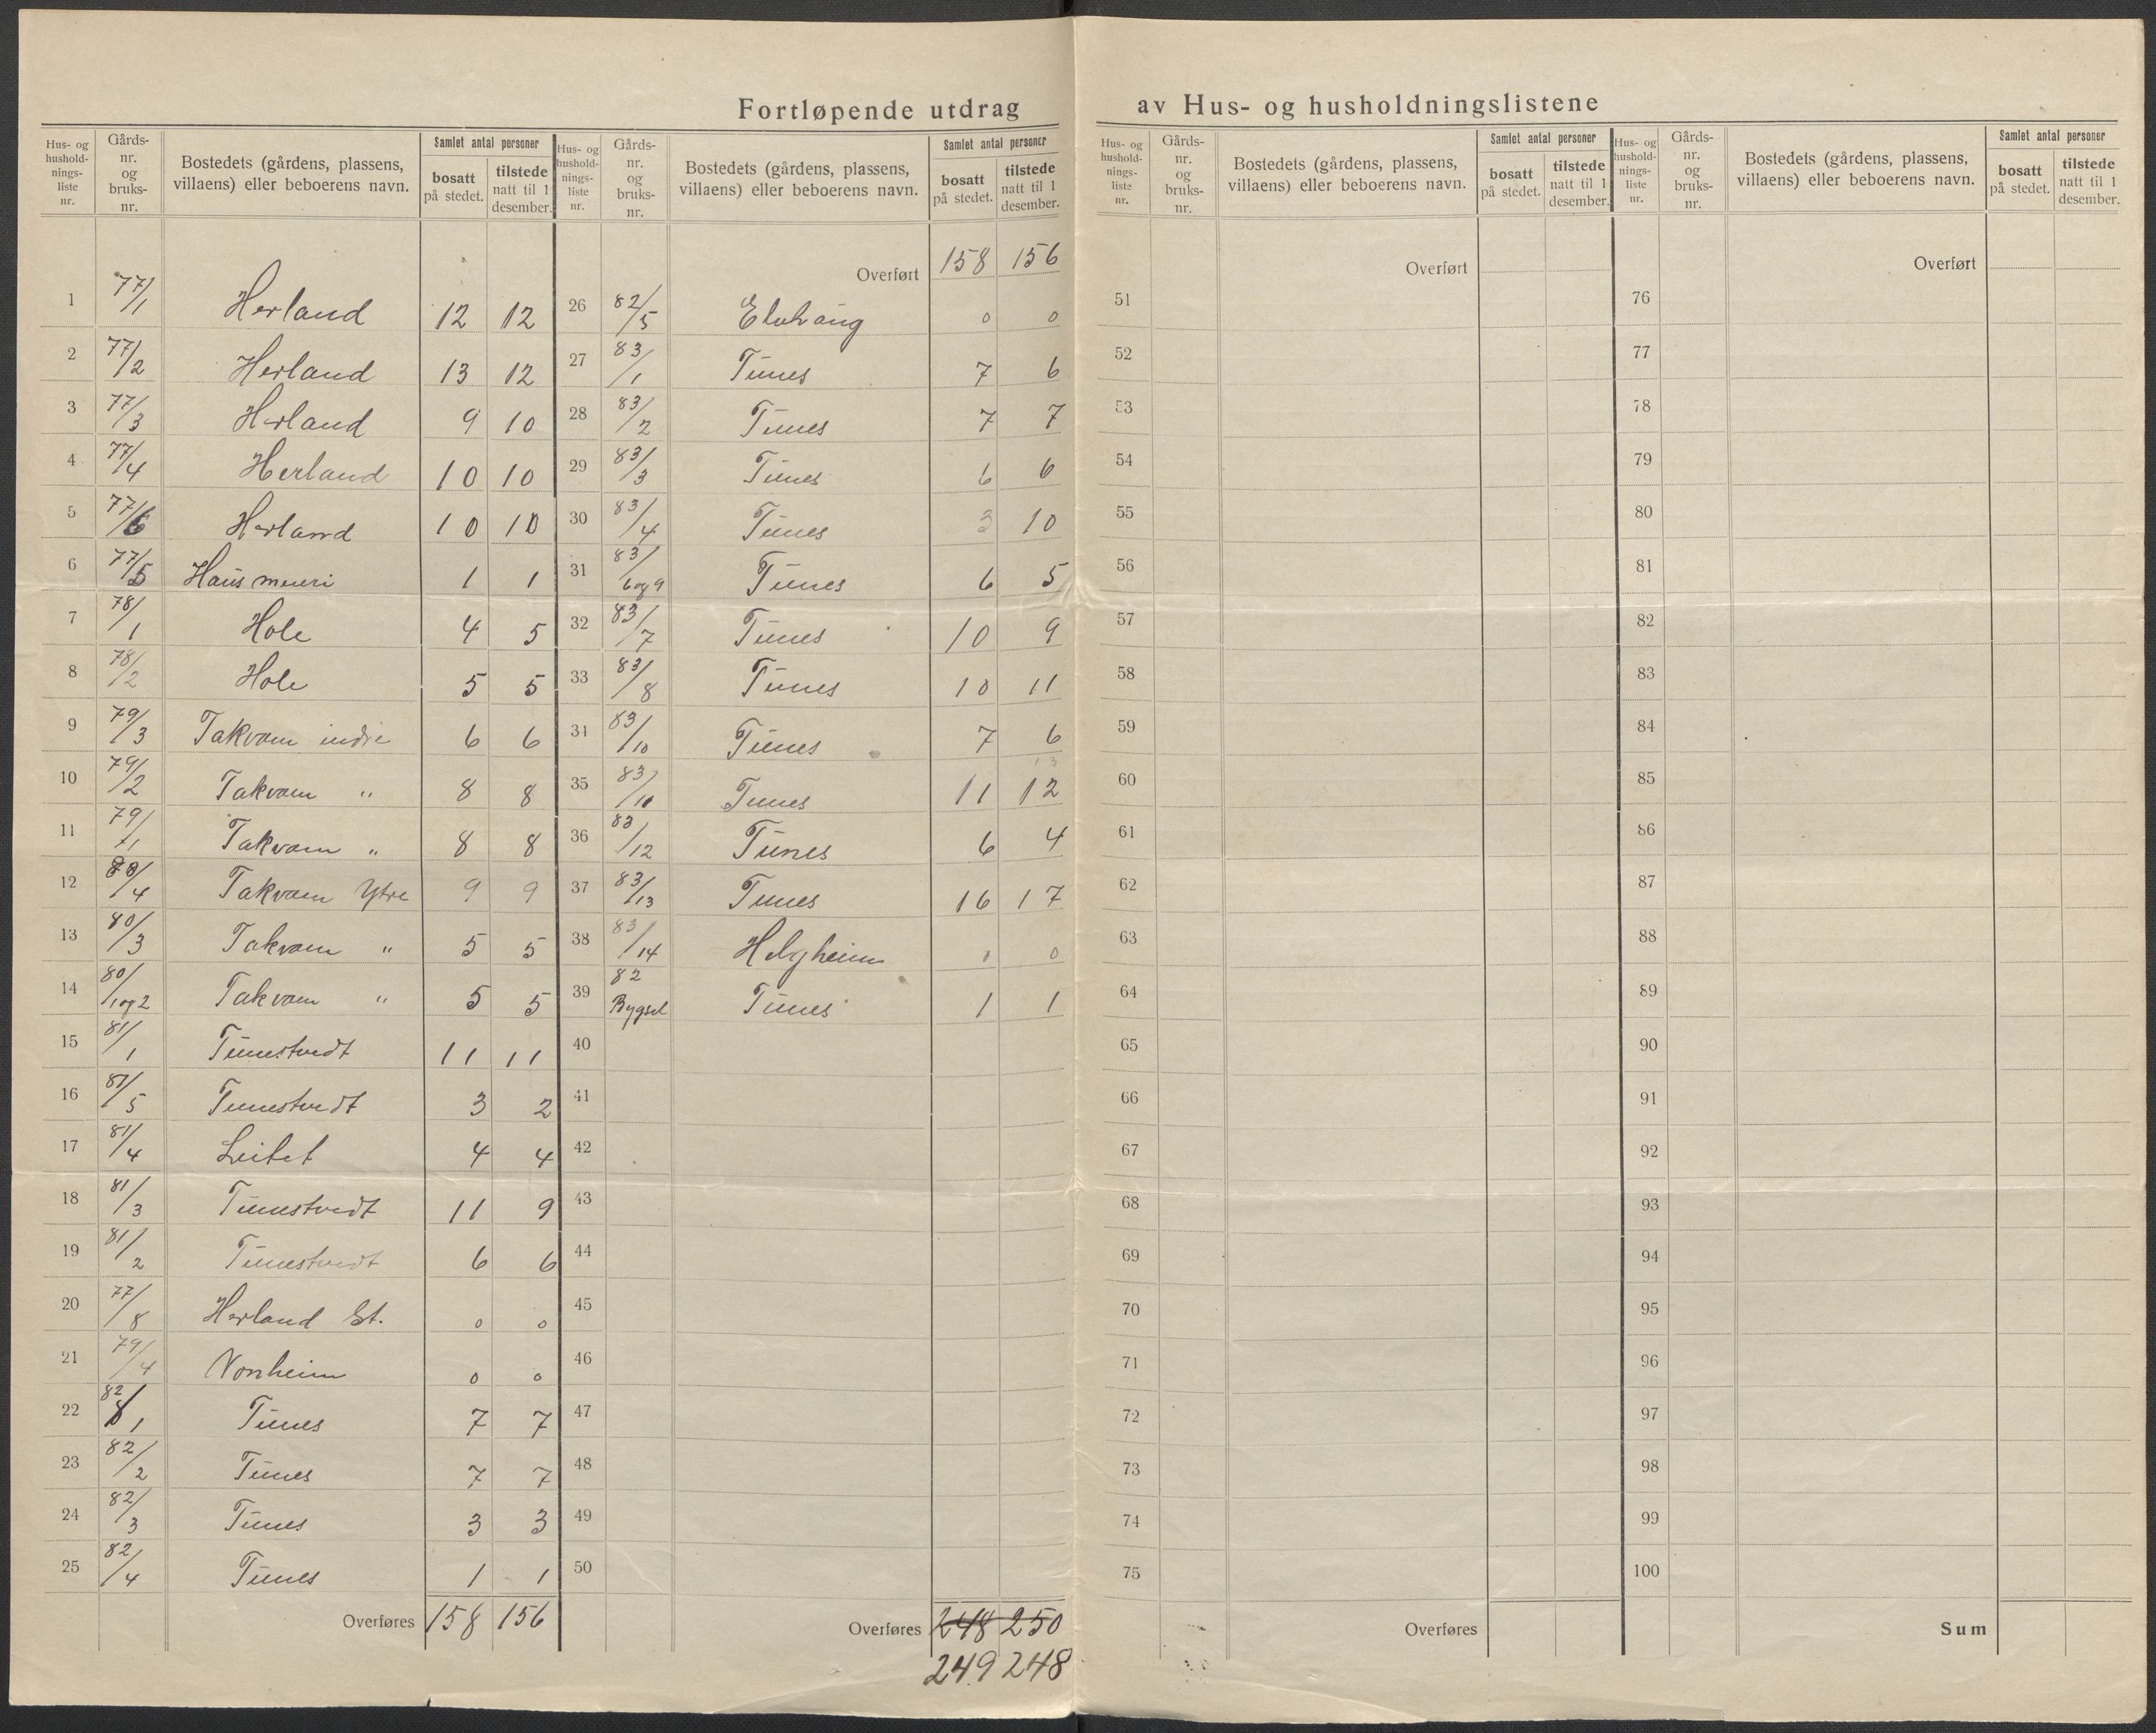 Fortløpende utdrag av Hus- og husholdningslistene
Hus- og hushold-nings-liste nr. Gårds-nr. og bruks-nr. Bostedets (gårdens, plassens, villaens) eller beboerens navn. Samlet antal personer bosatt på stedet. tilstede natt til 1 desember.
1 77/1 Herland 12 12
2 77/2 Herland 13 12
3 77/3 Herland 9 10
4 77/4 Herland 10 10
5 77/6 Herland 10 10
6 77/5 Haus meieri 1 1
7 78/1 Hole 4 5
8 78/2 Hole 5 5
9 79/3 Takvam indre 6 6
10 79/2 Takvam " 8 8
11 79/1 Takvam " 8 8
12 80/4 Takvam Ytre 9 9
13 80/3 Takvam " 5 5
14 80/1og2 Takvam " 5 5
15 81/1 Tunestvedt 11 11
16 81/5 Tunestvedt 3 2
17 81/4 Leitet 4 4
18 81/3 Tunestvedt 11 9
19 81/2 Tunestvedt 6 6
20 77/8 Herland St. 0 0
21 79/4 Vonheim 0 0
22 82/1 Tunes 7 7
23 82/2 Tunes 7 7
24 82/3 Tunes 3 3
25 82/4 Tunes 1 1
Overføres 158 156
Hus- og hushold-nings-liste nr. Gårds-nr. og bruks-nr. Bostedets (gårdens, plassens, villaens) eller beboerens navn. Samlet antal personer bosatt på stedet. tilstede natt til 1 desember.
Overført 158 156
26 82/5 0 0
27 83/1 Tunes 7 6
28 83/2 Tunes 7 7
29 83/3 Tunes 6 6
30 83/4 Tunes 3 10
31 83/6og9 Tunes 6 5
32 83/7 Tunes 10 9
33 83/8 Tunes 10 11
34 83/10 Tunes 7 6
35 83/10 Tunes 11 12
36 83/12 Tunes 6 4
37 83/13 Tunes 16 17
38 83/14 Helgheim 0 0
39 82 Bygsel Tunes 1 1
40
41
42
43
44
45
46
47
48
49
50
Overføres 248 250
249 248
Hus- og hushold-nings-liste nr. Gårds-nr. og bruks-nr. Bostedets (gårdens, plassens, villaens) eller beboerens navn. Samlet antal personer bosatt på stedet. tilstede natt til 1 desember.
Overført
51
52
53
54
55
56
57
58
59
60
61
62
63
64
65
66
67
68
69
70
71
72
73
74
75
Overføres
Hus- og hushold-nings-liste nr. Gårds-nr. og bruks-nr. Bostedets (gårdens, plassens, villaens) eller beboerens navn. Samlet antal personer bosatt på stedet. tilstede natt til 1 desember.
Overført
76
77
78
79
80
81
82
83
84
85
86
87
88
89
90
91
92
93
94
95
96
97
98
99
100
Sum